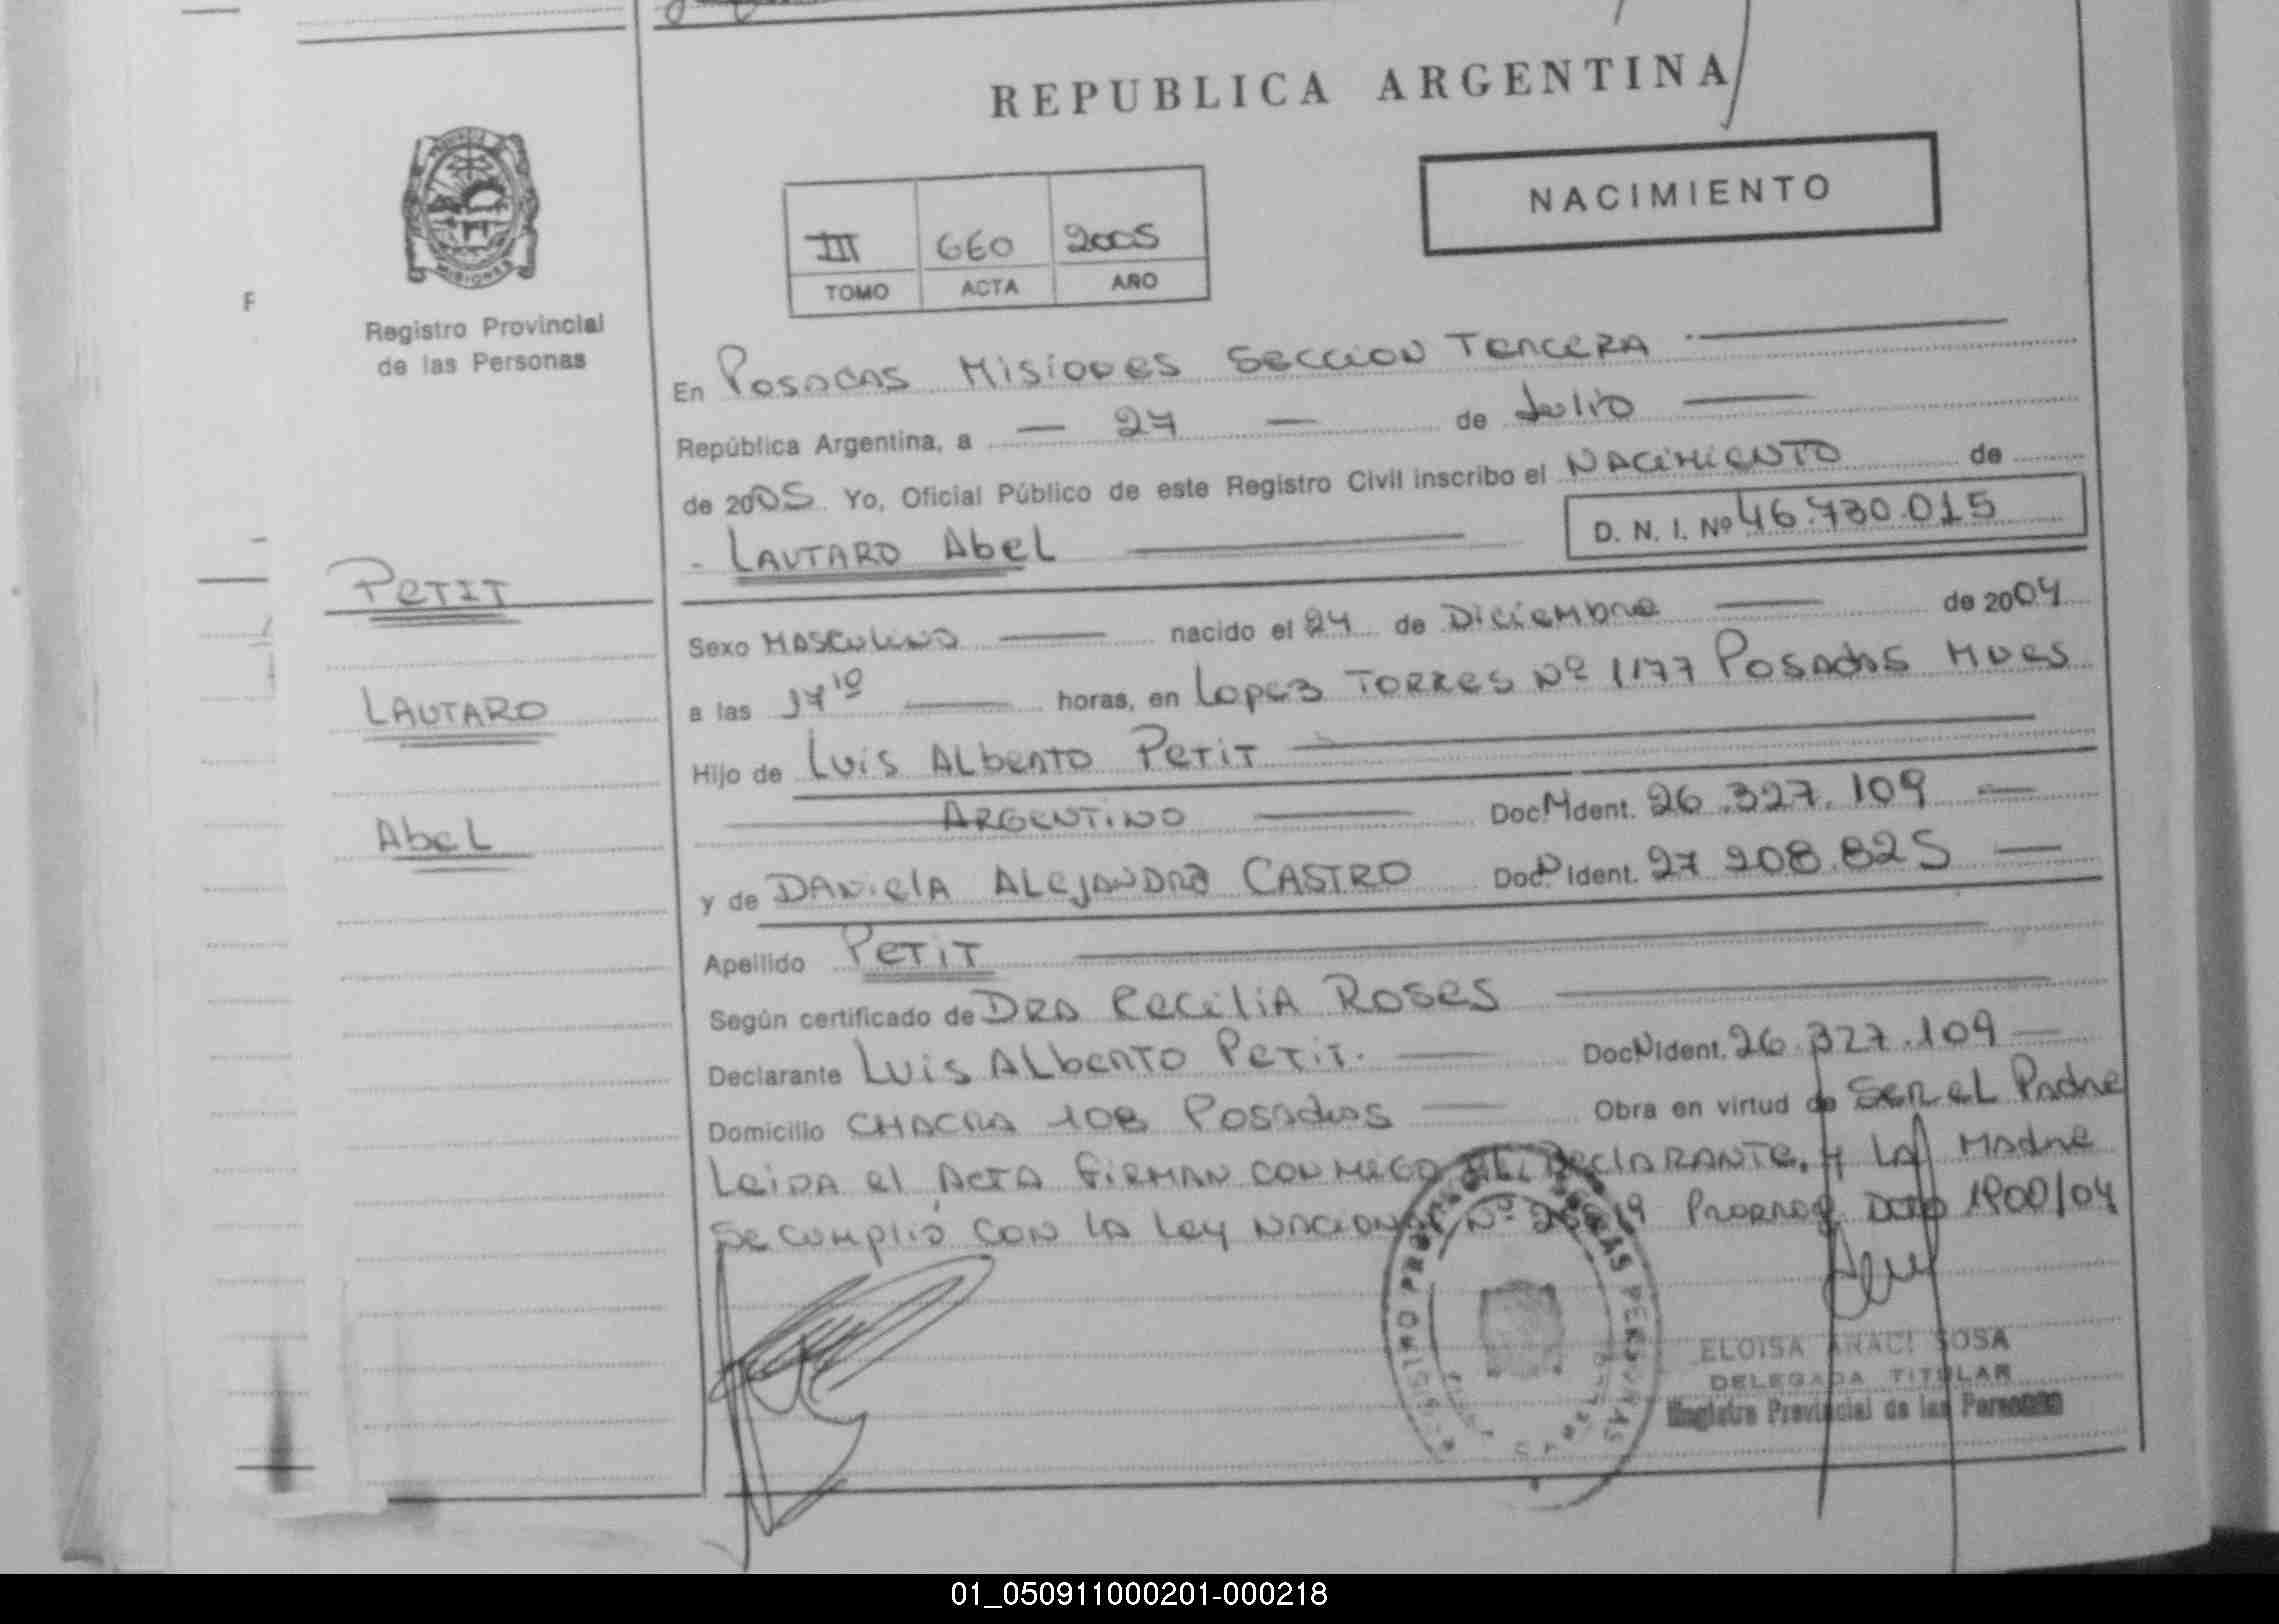 REPUBLICA ARGENTINA
NACIMIENTO
III 660 2005
TOMO ACTA AÑO
MISIONES
Registro Provincial
de las Personas
F
PETIT
LAUTARO
Abel
En Posadas Misiones Seccion Tercera
República Argentina, a — 27 — de Julio
de 2005. Yo, Oficial Público de este Registro Civil inscribo el NACIMIENTO de
- LAUTARO Abel D. N. I. Nº 46.730.015
Sexo MASCULINO nacido el 24 de Diciembre de 2004
a las 17 10 horas, en Lopez Torres Nº 1177 Posadas Mnes
Hijo de Luis Alberto Petit
ARGENTINO Doc. Ident. 26.327.109
y de Daniela Alejandra CASTRO Doc. Ident. 27 208.825
Apellido Petit
Según certificado de Dra Cecilia Roses
Declarante Luis Alberto Petit. Doc Ident. 26.327.109
Domicilio CHACRA 108 Posadas Obra en virtud de Ser el Padre
Leida el Acta firman conmigo el Declarante, y La Madre
Se cumplió con la Ley Nacional Nº Prorrog. Dcto 1900/04
ELOISA ANACI SOSA
DELEGADA TITULAR
Registro Provincial de las Personas
01_050911000201-000218